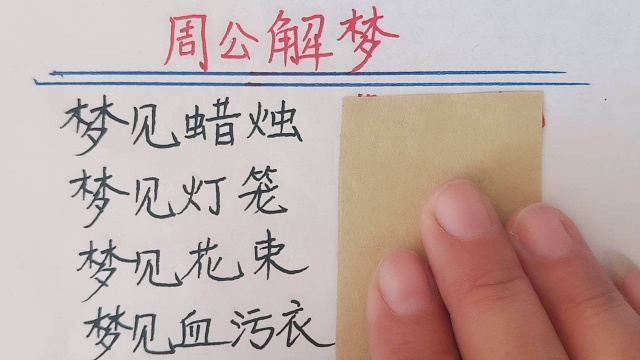 周公解梦
梦见蜡烛
梦见灯笼
梦见花束
梦见血污衣